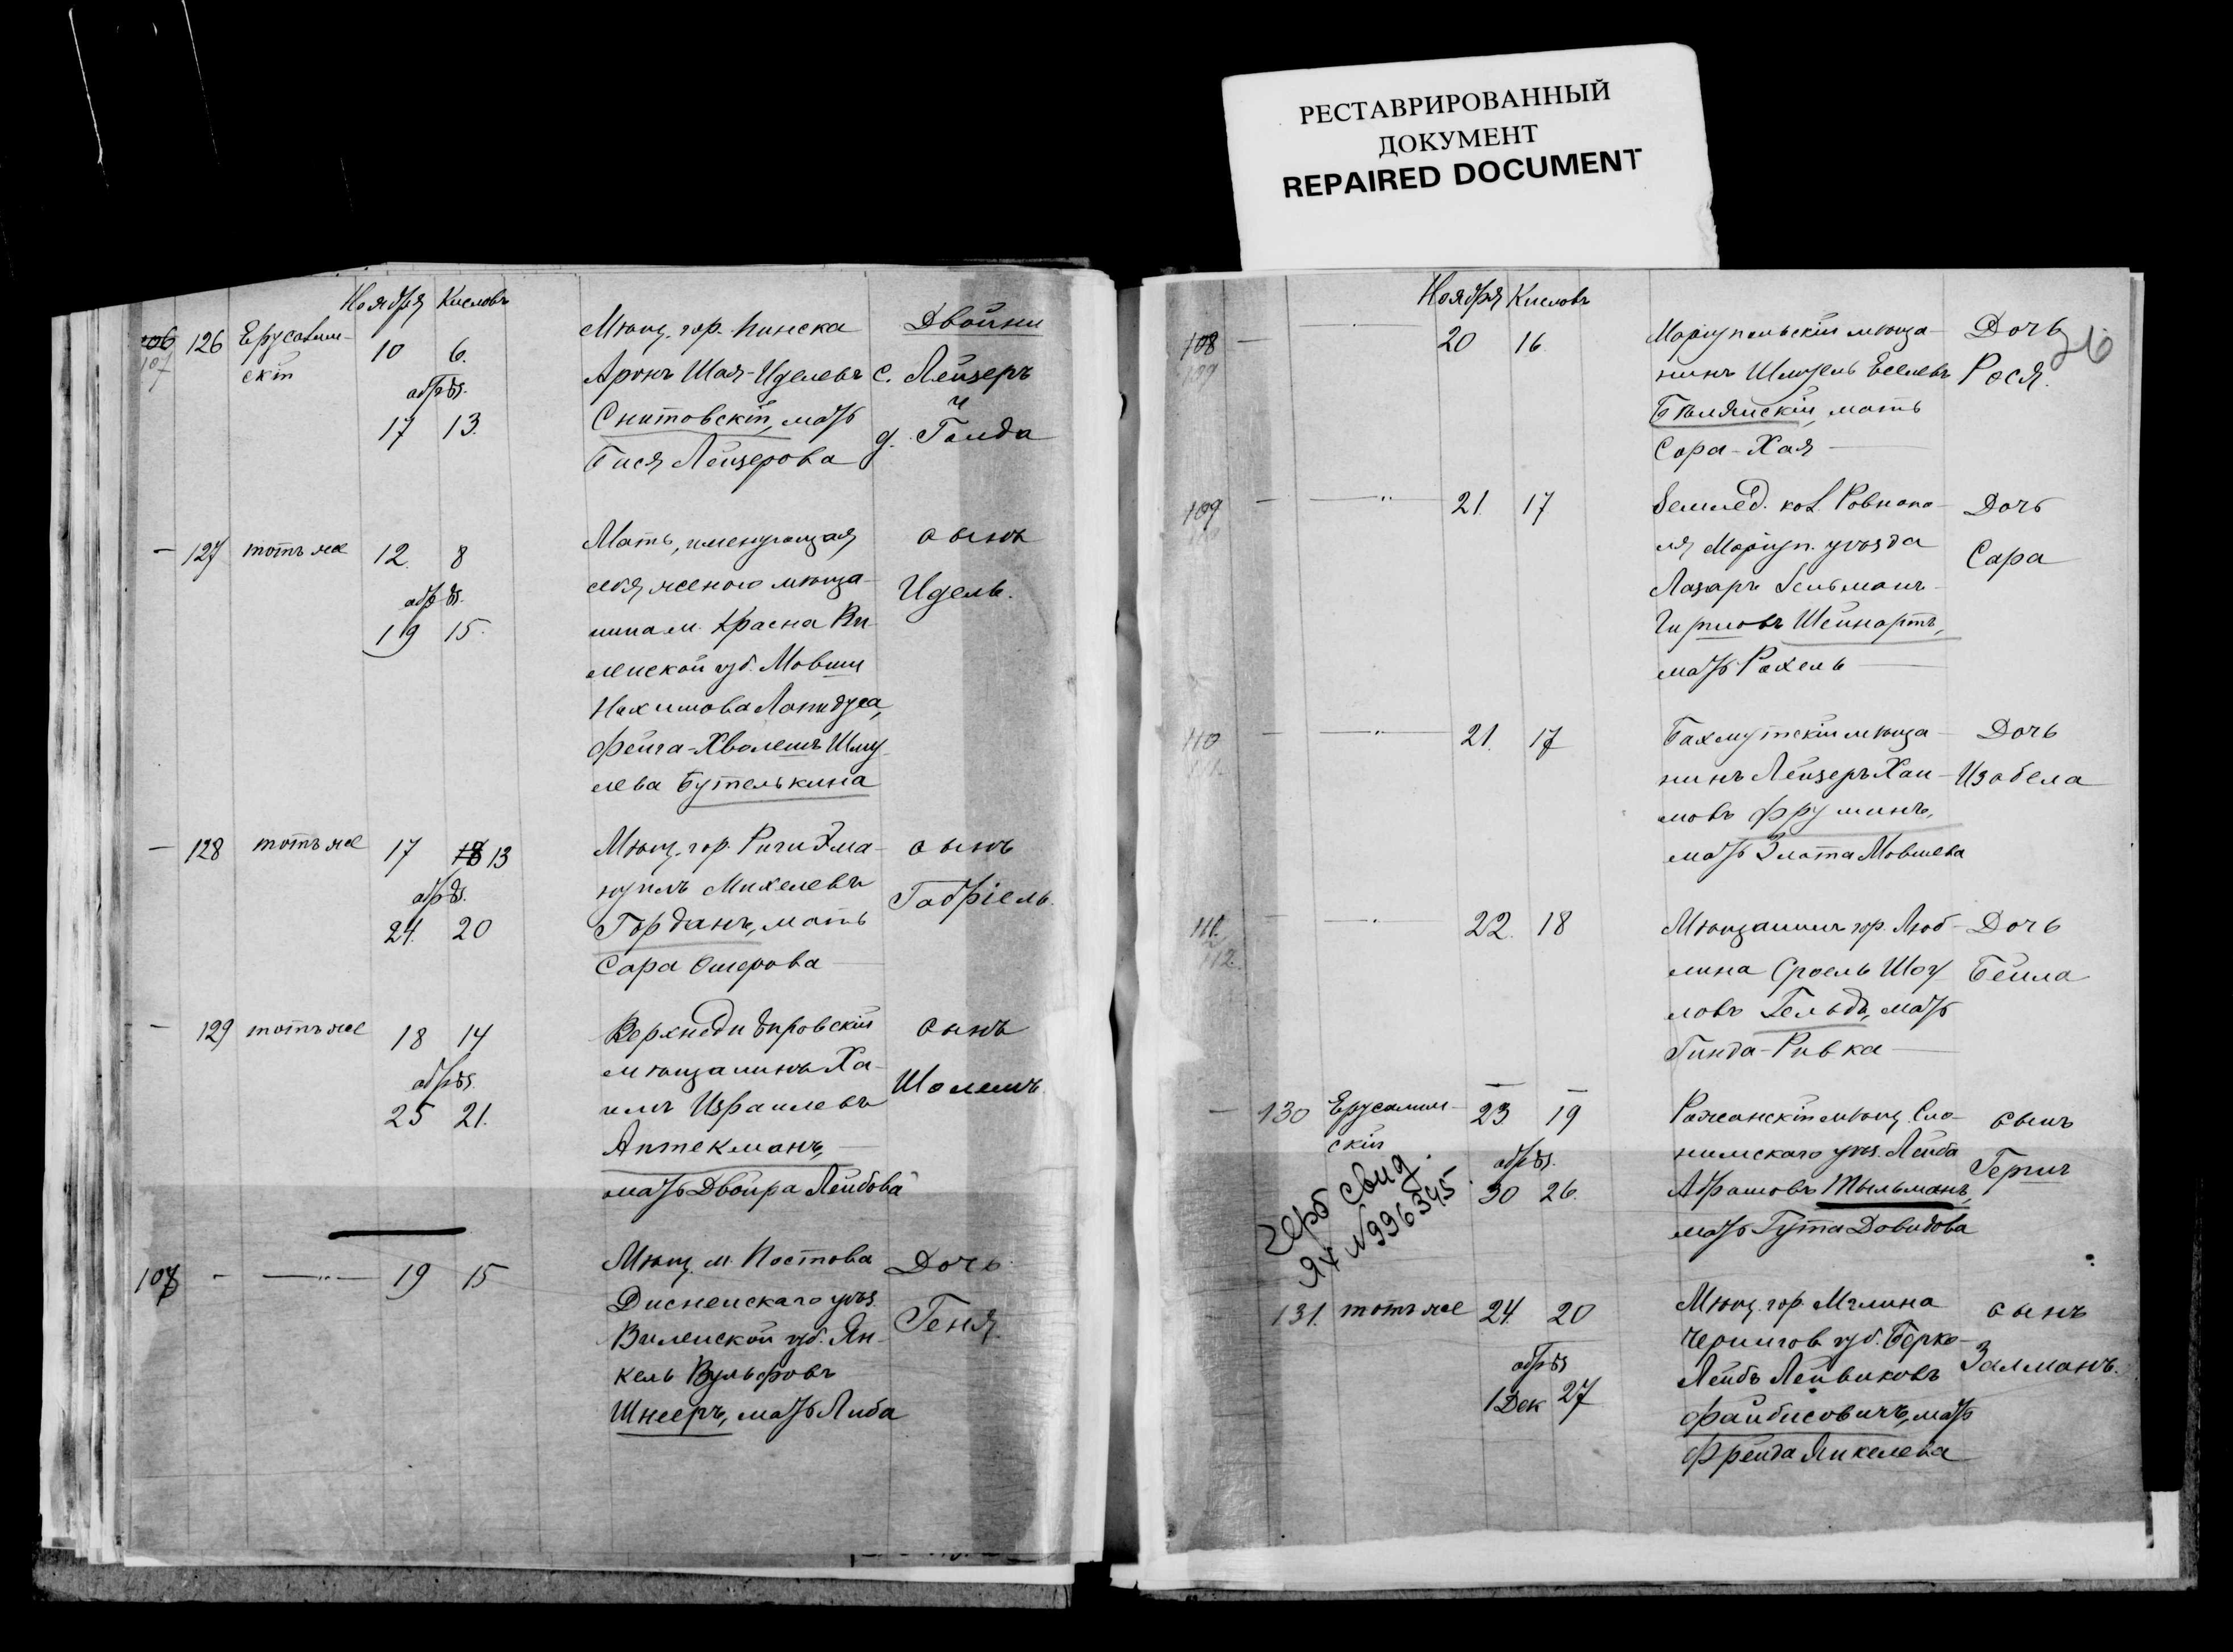 РЕСТАВРИРОВАННЫЙ
ДОКУМЕНТ
REPAIRED DOCUMENT
Ноября Кислевъ
106 126 Ерусалим-
107 скій
10 6.
обрѣз.
17 13.
Мѣщ. гор. Пинска
Аронъ Шая-Иделевъ
Снитовскій, мать
Бася Лейзерова
Двойни
с. Лейзеръ
и
д. Голда
— 127 тотъ же 12. 8
обрѣз.
19 15.
Мать, именующая
себя женою мѣща-
нина м. Красна Ви-
ленской губ. Мовши
Нахимова Лапидуса,
Фейга-Хволешъ Шму-
лева Бутелькина
сынъ
Идель.
— 128 тотъ же 17 18 13
обрѣз.
24. 20
Мѣщ. гор. Риги Эма-
нуилъ Михелевъ
Горданъ, мать
Сара Ошерова
сынъ
Габріель.
— 129 тотъ же 18 14
обрѣз.
25 21.
Верхнеднѣпровскій
мѣщанинъ Ха-
имъ Израилевъ
Аптекманъ,
мать Двойра Лейбова
сынъ
Шоломъ.
107 - —"— 19 15
Мѣщ. м. Постова
Дисненскаго уѣз.
Виленской губ. Ян-
кель Вульфовъ
Шнееръ, мать Либа
Дочь
Геня.
26
Ноября Кислевъ
108 — 20 16
109
Маріупольскій мѣща-
нинъ Шмуель Еселевъ
мать
Сора-Хая
Дочь
Рося.
109 — —"— 21. 17
110
Землед. кол. Ровнопо-
ля Маріуп. уѣзда
Лазарь Зельманъ-
Гиршовъ Шейнартъ,
мать Рахель
Дочь
Сара
110 — —"— 21. 17
111.
Бахмутскій мѣща-
нинъ Лейзеръ Хаи-
мовъ Фруминъ,
мать Злата Мовшева
Дочь
Изабела
111. — —"— 22. 18
112.
Мѣщанинъ гор. Люб-
лина Сроель Шоу-
ловъ Гельдъ, мать
Гинда-Ривка
Дочь
Бейла
— 130 Ерусалим-
скій
23 19
обрѣз.
30 26.
Герб свид.
ЯХ №996345
Ружанскій мѣщ. Сло-
нимскаго уѣз. Лейба
Абрамовъ Тыльманъ,
мать Гута Довидова
сынъ
Гершъ
— 131. тотъ же 24. 20
обрѣз
1 Дек 27
Мѣщ. гор. Мглина
Чернигов. губ. Берко-
Лейбъ Лейвиковъ
Файбисовичъ, мать
Фрейда Янкелева
сынъ
Залманъ.